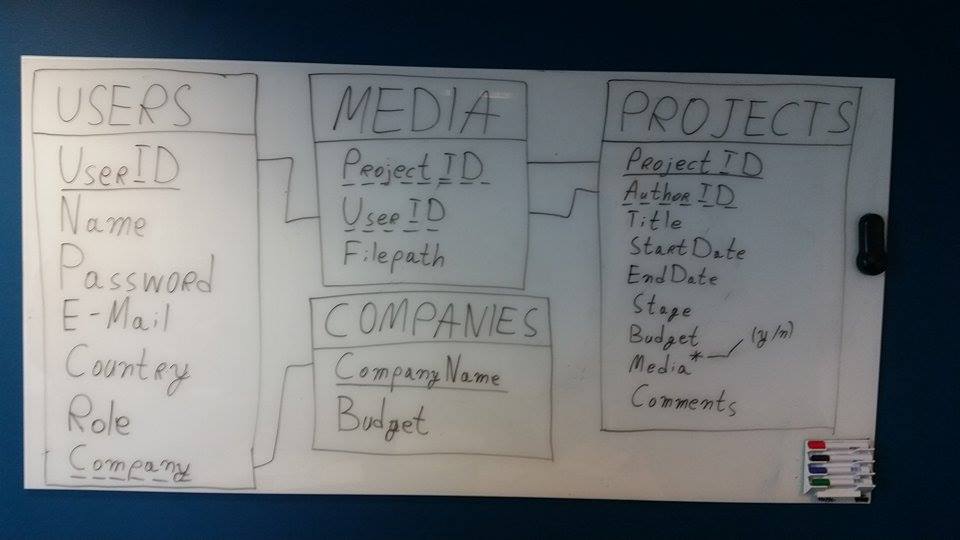 USERS
UserID
Name
Password
E-Mail
Country
Role
Company
MEDIA
Project ID
User ID
Filepath
COMPANIES
CompanyName
Budget
PROJECTS
Project ID
Author ID
Title
StartDate
EndDate
Stage
Budget
Media* (y/n)
Comments